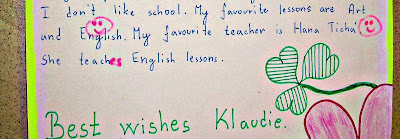 I don't like school. My favourite lessons are Art
and English. My favourite teacher is Hana Tichá.
She teaches English lessons.
Best wishes Klaudie.